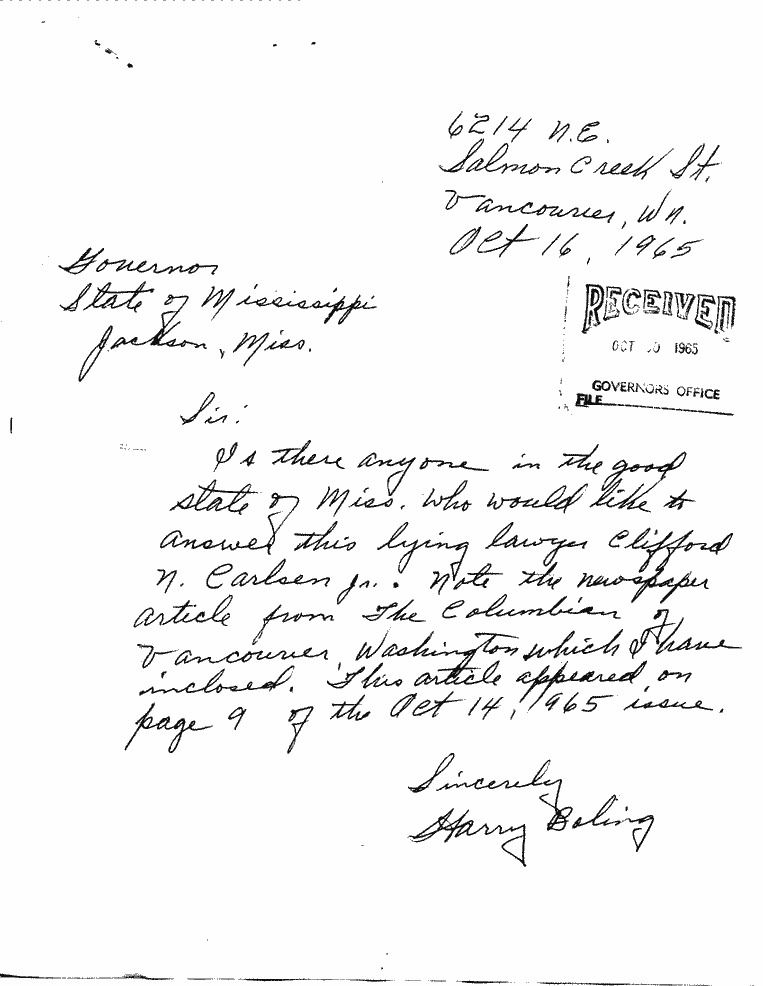 6214 N.E.
Salmon Creek St.
Vancouver, Wn.
Oct 16, 1965
Governor
State of Mississippi
Jackson, Miss.
RECEIVED
OCT 1965
GOVERNORS OFFICE
FILE
Sir:
Is there anyone in the good
state of Miss. who would like to
answer this lying lawyer Clifford
N. Carlsen Jr.. Note the newspaper
article from The Columbian of
Vancouver, Washington which I have
inclosed. This article appeared on
page 9 of the Oct 14, 1965 issue.
Sincerely
Harry Boling